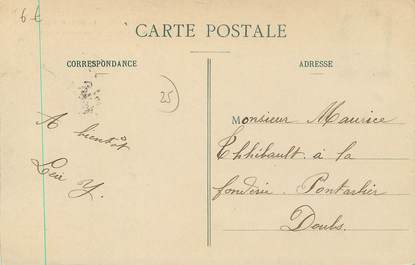 6 €
CARTE POSTALE
CORRESPONDANCE
ADRESSE
25
A bientôt
Y.
Monsieur Maurice
Thhibault à la
fonderie. Pontarlier
Doubs.